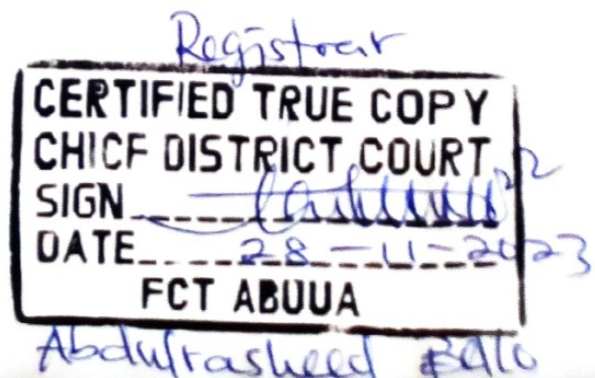 Registrar
CERTIFIED TRUE COPY
CHICF DISTRICT COURT
SIGN
DATE 28-11-2023
FCT ABUUA
Abdulrasheed Bello